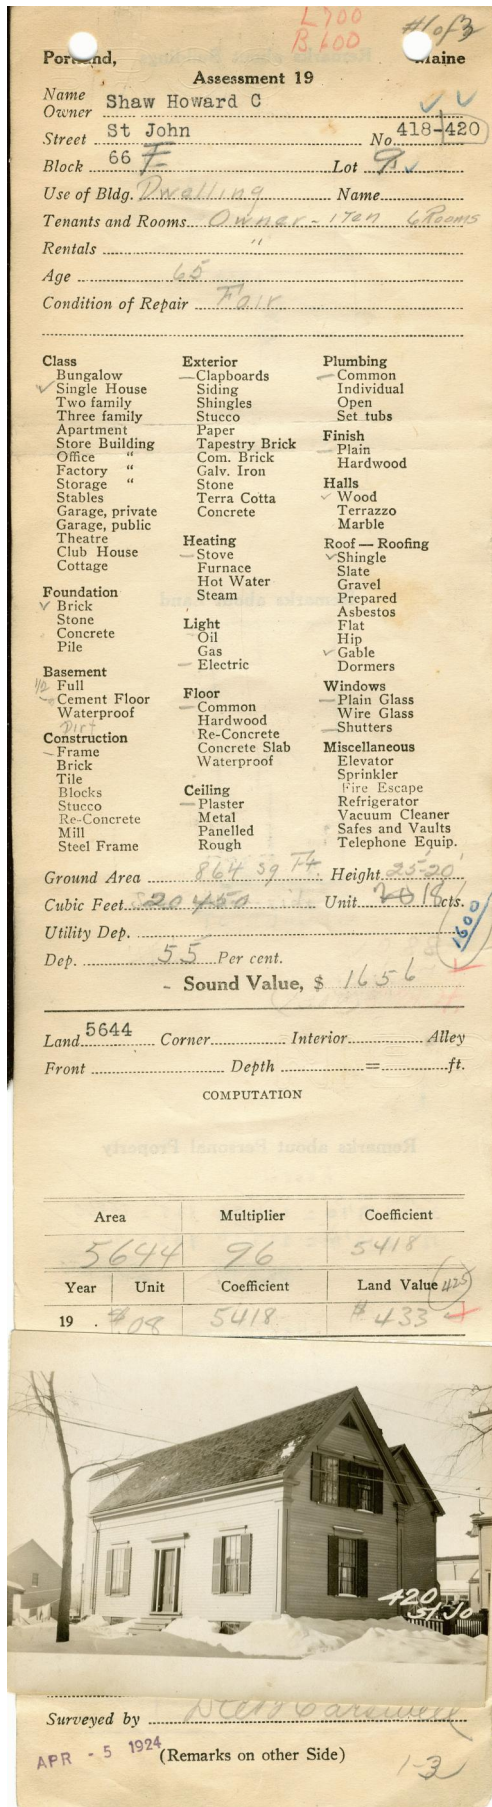 L 700
B.600
#1 of 3
Portland, Maine
Assessment 19
Name
Owner Shaw Howard C
Street St John No 418-420
Block 66 F Lot 9
Use of Bldg. Dwelling Name
Tenants and Rooms Owner - 1 Ten 6 Rooms
Rentals "
Age 65
Condition of Repair Fair
Class
Bungalow
Single House
Two family
Three family
Apartment
Store Building
Office "
Factory "
Storage "
Stables
Garage, private
Garage, public
Theatre
Club House
Cottage
Foundation
Brick
Stone
Concrete
Pile
Basement
1/2 Full
Cement Floor
Waterproof
Dirt
Construction
Frame
Brick
Tile
Blocks
Stucco
Re-Concrete
Mill
Steel Frame
Exterior
Clapboards
Siding
Shingles
Stucco
Paper
Tapestry Brick
Com. Brick
Galv. Iron
Stone
Terra Cotta
Concrete
Heating
Stove
Furnace
Hot Water
Steam
Light
Oil
Gas
Electric
Floor
Common
Hardwood
Re-Concrete
Concrete Slab
Waterproof
Ceiling
Plaster
Metal
Panelled
Rough
Plumbing
Common
Individual
Open
Set tubs
Finish
Plain
Hardwood
Halls
Wood
Terrazzo
Marble
Roof — Roofing
Shingle
Slate
Gravel
Prepared
Asbestos
Flat
Hip
Gable
Dormers
Windows
Plain Glass
Wire Glass
Shutters
Miscellaneous
Elevator
Sprinkler
Fire Escape
Refrigerator
Vacuum Cleaner
Safes and Vaults
Telephone Equip.
Ground Area 864 sq Ft. Height 25'-20'
Cubic Feet 20 450 Unit 18 cts.
Utility Dep.
1600
Dep. 55 Per cent.
Sound Value, $ 1656
Land 5644 Corner Interior Alley
Front Depth = ft.
COMPUTATION
Area Multiplier Coefficient
5644 96 5418
Year Unit Coefficient Land Value 425
19 . $.08 5418 $ 433
420
St. Jo
Surveyed by
APR - 5 1924 (Remarks on other Side)
1-3